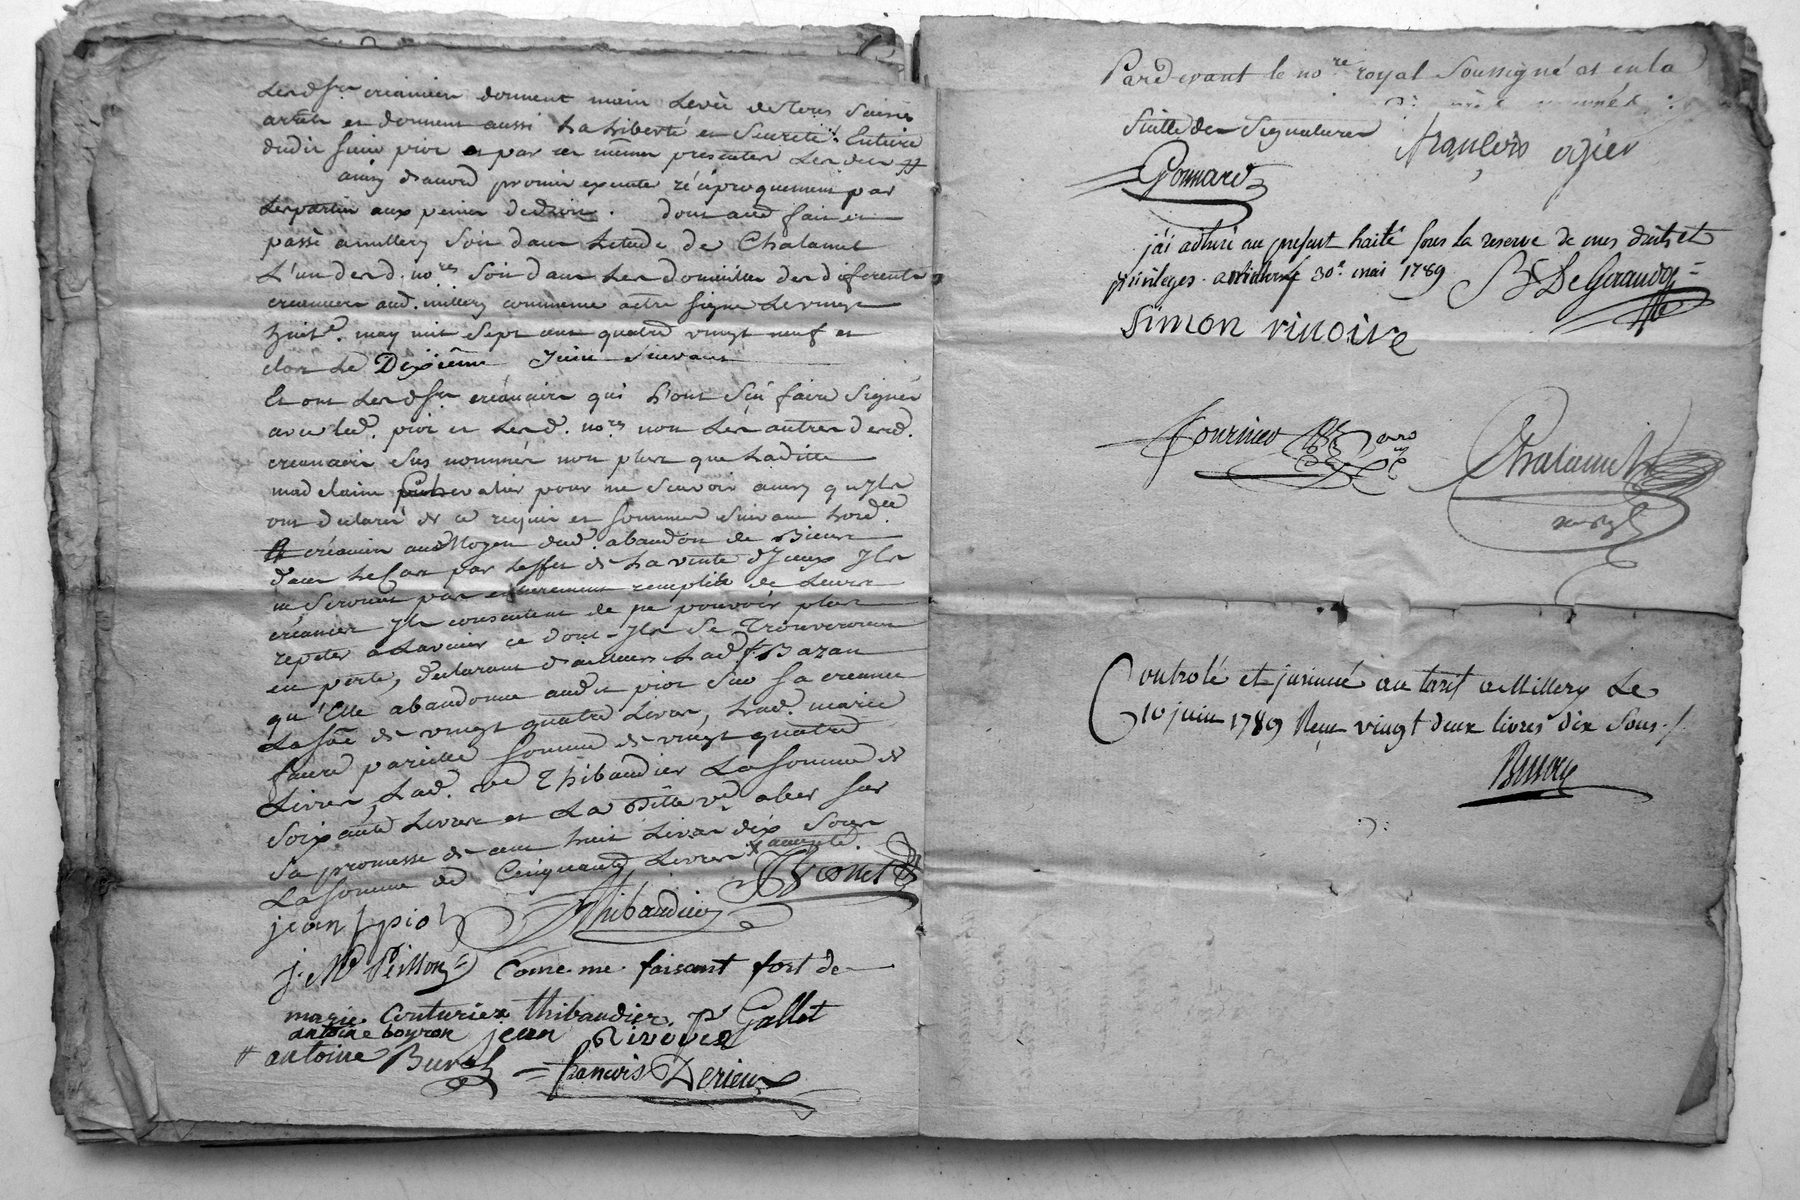 donnent main levée de tous saisie
arrêts et donnent aussi la liberté et seureté Entiere
dudit sieur piot et par ces mêmes presentes les
ainsy d'acord promis executer réciproquement par
les parties aux peines de droit. dont acte fait et
passé à millery soit dans Letude de Chalamel
L'un desd. nores soit dans les domicilles des diferents
creanciers aud. millery commencé a être signé le vingt
huite. may mil sept cent quatre vingt neuf et
clos le Dixième Juin suivant
Et ont Lesdsrs créanciers qui l'ont sçu faire signés
avec led. piot et Lesd. nores non les autres desd.
creanciers sus nommés non plus que Laditte
madelaine chevalier pour ne scavoir ainsy qu'Ils
ont declaré de ce requis et sommés suivant Lord.ce
créanciers aud. abandon de Biens
dans Le Cas par Leffet de La vente d'Iceux Ils
ne seroient pas entierement remplis de Leurs
créances Ils consentent de ne pouvoir plus
repeter a Lavenir ce dont Ils se trouveroient
en perte, declarant d'ailleurs Lad. Bazan
qu'Elle abandonne audit piot sur sa creance
La sôe de vingt quatre Livres, Lad. marie
faure pareille somme de vingt quatre
Livres, Lad. ve Thibaudier La somme de
soixante Livres et La ditte ve sur
sa promesse de cent huit Livres dix sous
La somme de Cinquante Livres
jean piot Thibaudier
j. Me Peillon Come me faisant fort de
marie Couturier thibaudier. P Gallet
antoine boyron jean Rivoyre
# antoine Buret = francois Derieux
Pardevant le nore royal soussigné et en la
Suitte des Signatures françois ogier
Gonnard
j'ai adhéré au present traité sous la reserve de mes droits et
privileges. 30e. mai 1789 De Giraudon
Simon vinoire
Chalamel
Controlé et insinué au tarif a Millery Le
10 juin 1789 Reçu vingt deux livres dix sous